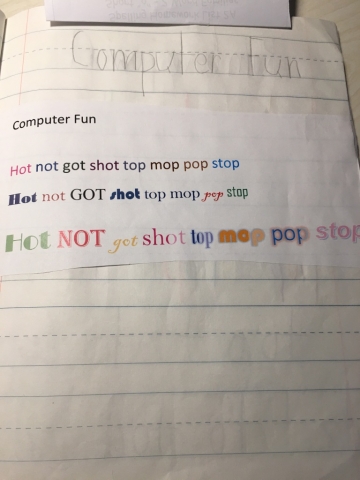 Computer Fun
Computer Fun
Hot not got shot top mop pop stop
Hot not GOT shot top mop pop stop
Hot NOT got shot top mop pop stop